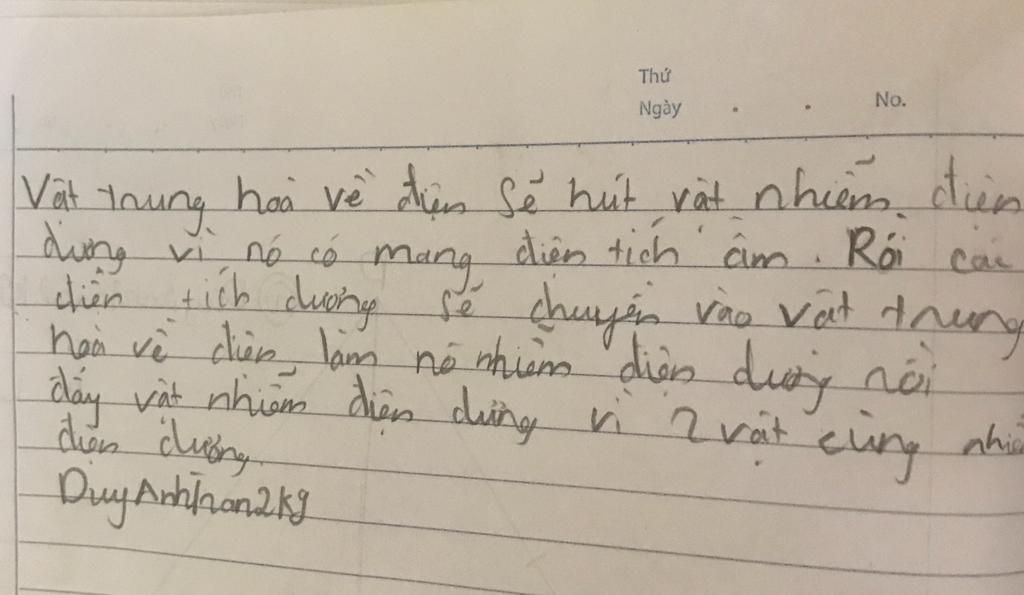 Thứ
Ngày . . No.
Vật trung hoà về điện sẽ hút vật nhiễm điện
dương vì nó có mang điện tích âm. Rồi các
điện tích dương sẽ chuyển vào vật trung
hoà về điện làm nó nhiễm điện dương rồi
đẩy vật nhiễm điện dương vì 2 vật cùng nhiễ
điện dương.
DuyAnhTran2k9